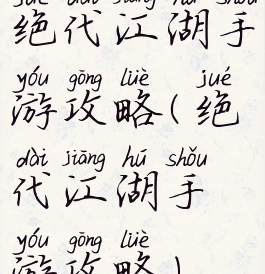 jué dài jiāng hú shǒu
绝代江湖手
yóu gōng lüè jué
游攻略(绝
dài jiāng hú shǒu
代江湖手
yóu gōng lüè
游攻略)